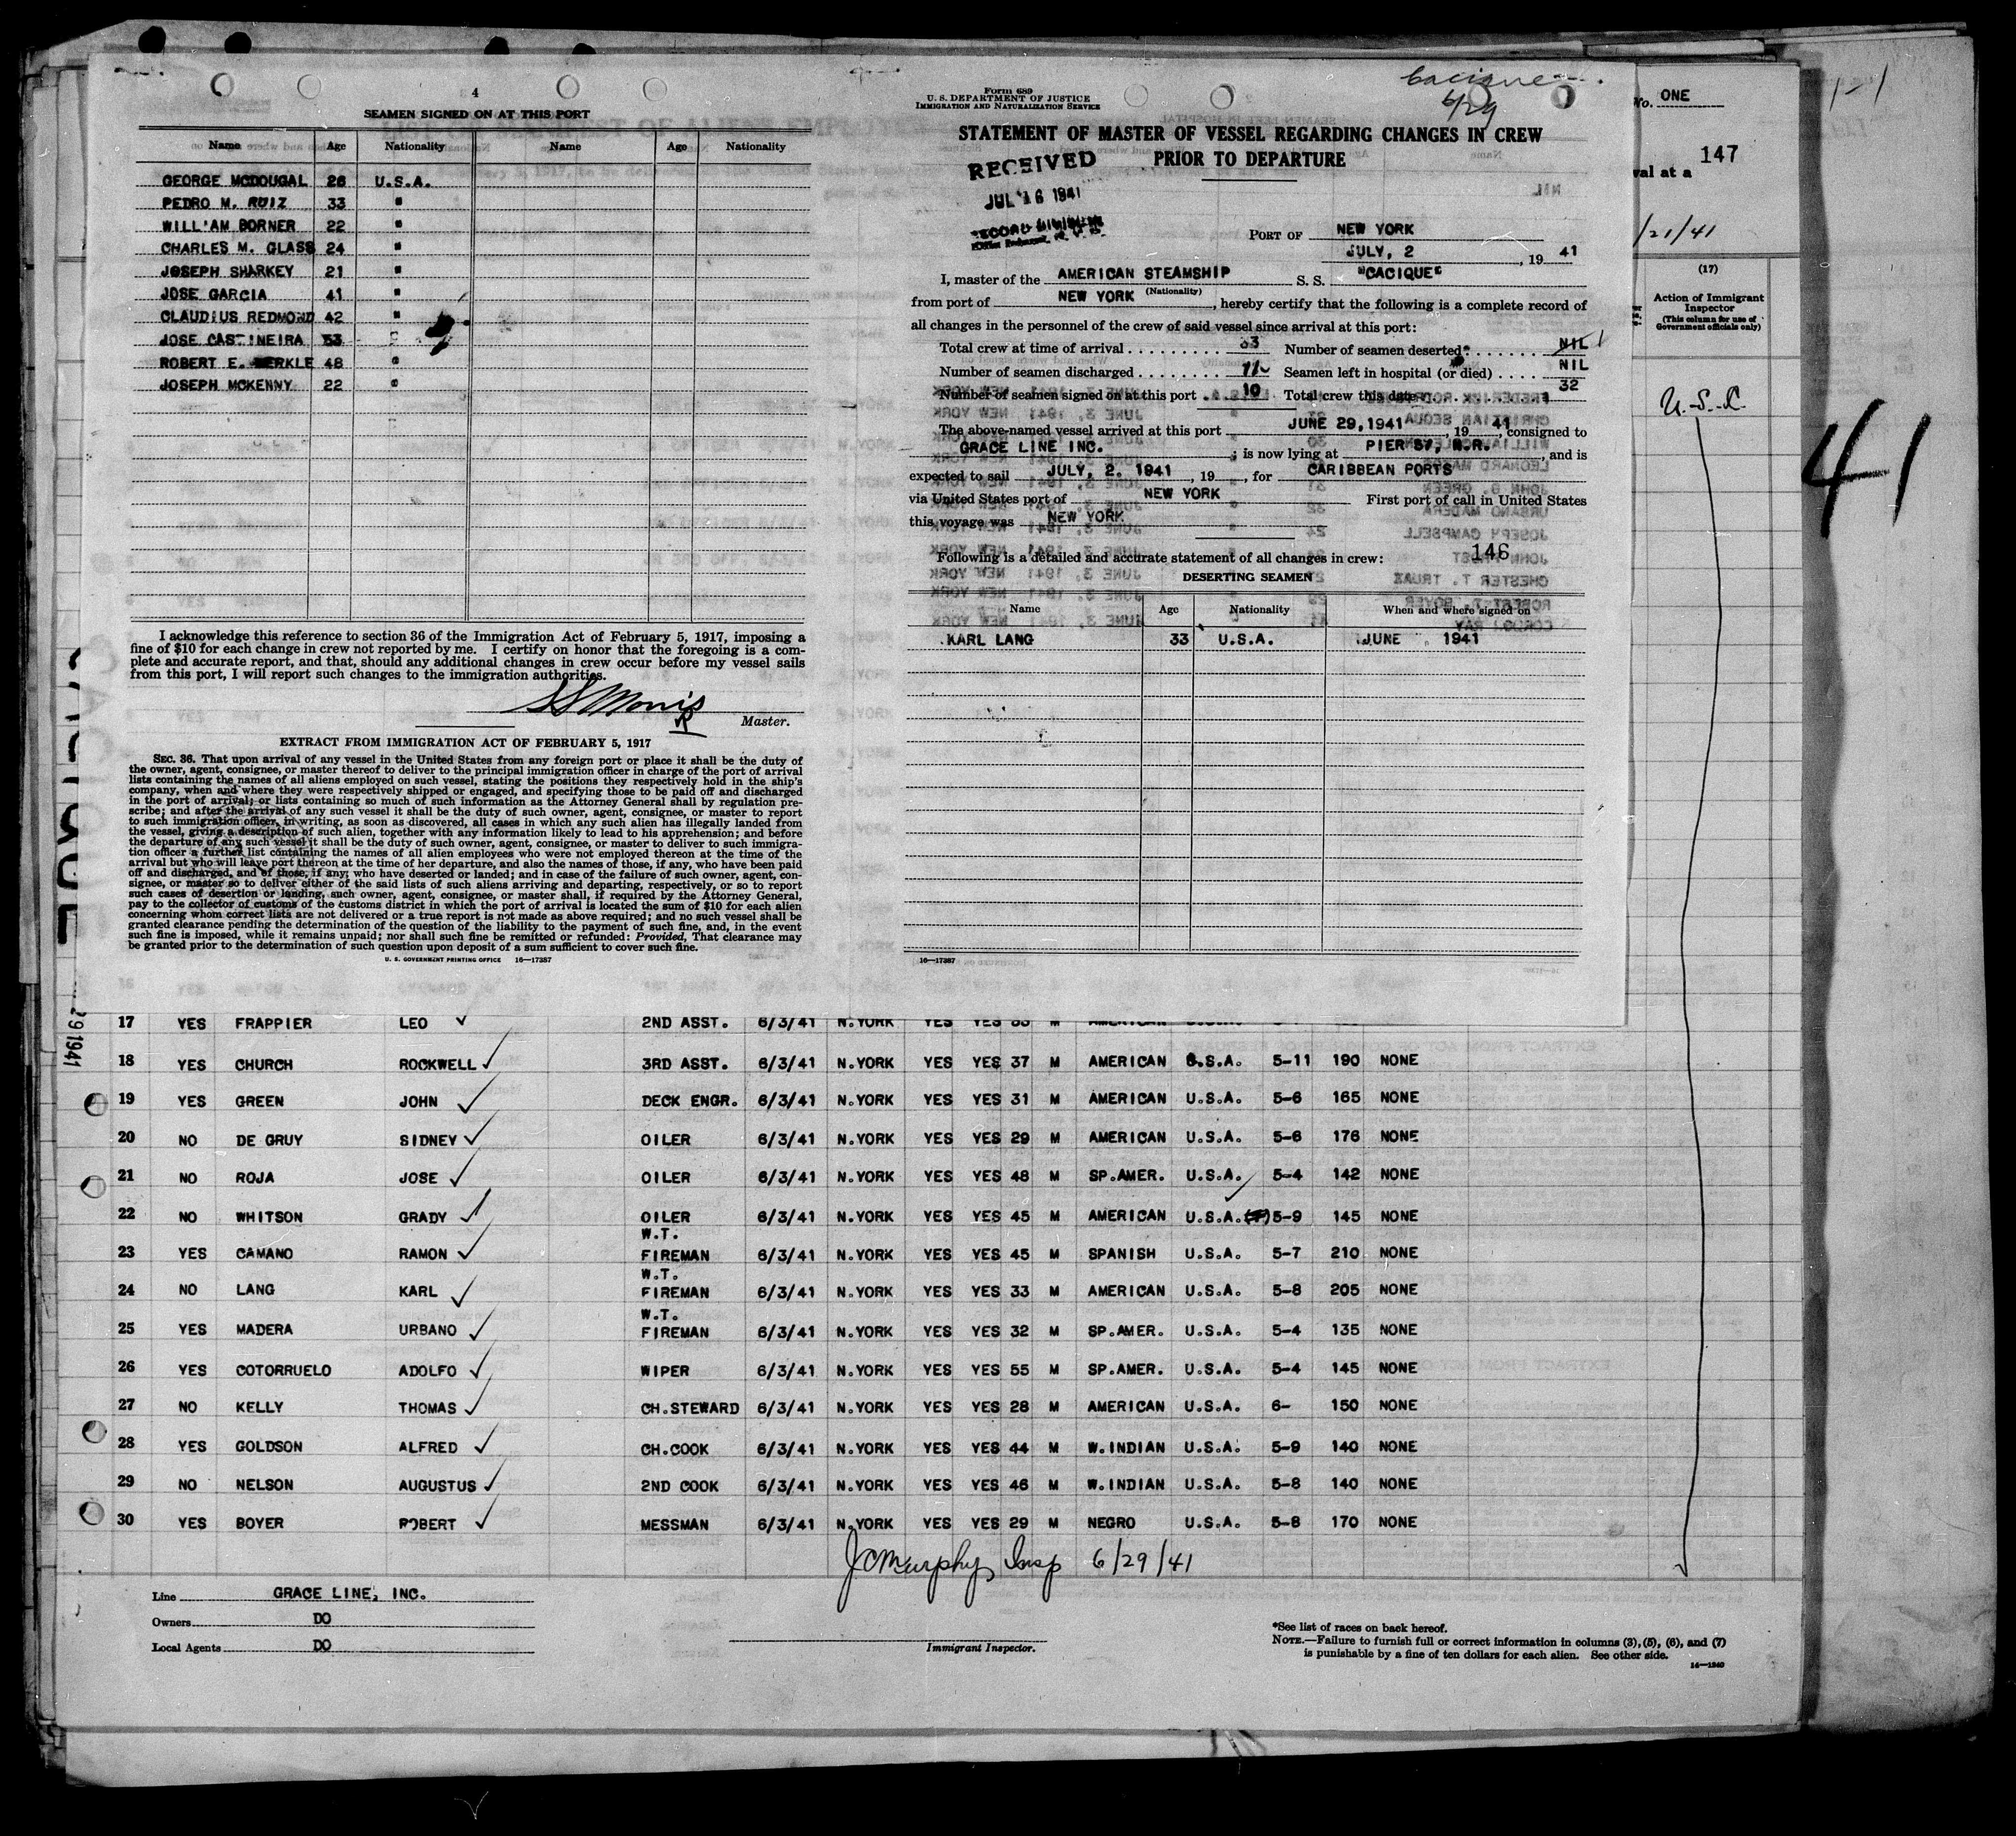 4
SEAMEN SIGNED ON AT THIS PORT
Name Age Nationality Name Age Nationality
GEORGE MCDOUGAL 26 U.S.A.
PEDRO M. RUIZ 33 "
WILL'AM BORNER 22 "
CHARLES M. GLASS 24 "
JOSEPH SHARKEY 21 "
JOSE GARCIA 41 "
CLAUDIUS REDMOND 42 "
JOSE CASTINEIRA 53
ROBERT E. MERKLE 48 "
JOSEPH MCKENNY 22 "
I acknowledge this reference to section 36 of the Immigration Act of February 5, 1917, imposing a
fine of $10 for each change in crew not reported by me. I certify on honor that the foregoing is a com-
plete and accurate report, and that, should any additional changes in crew occur before my vessel sails
from this port, I will report such changes to the immigration authorities.
Morris
Master.
EXTRACT FROM IMMIGRATION ACT OF FEBRUARY 5, 1917
SEC. 36. That upon arrival of any vessel in the United States from any foreign port or place it shall be the duty of
the owner, agent, consignee, or master thereof to deliver to the principal immigration officer in charge of the port of arrival
lists containing the names of all aliens employed on such vessel, stating the positions they respectively hold in the ship's
company, when and where they were respectively shipped or engaged, and specifying those to be paid off and discharged
in the port of arrival; or lists containing so much of such information as the Attorney General shall by regulation pre-
scribe; and after the arrival of any such vessel it shall be the duty of such owner, agent, consignee, or master to report
to such immigration officer, in writing, as soon as discovered, all cases in which any such alien has illegally landed from
the vessel, giving a description of such alien, together with any information likely to lead to his apprehension; and before
the departure of any such vessel it shall be the duty of such owner, agent, consignee, or master to deliver to such immigra-
tion officer a further list containing the names of all alien employees who were not employed thereon at the time of the
arrival but who will leave port thereon at the time of her departure, and also the names of those, if any, who have been paid
off and discharged, and of those, if any, who have deserted or landed; and in case of the failure of such owner, agent, con-
signee, or master so to deliver either of the said lists of such aliens arriving and departing, respectively, or so to report
such cases of desertion or landing, such owner, agent, consignee, or master shall, if required by the Attorney General,
pay to the collector of customs of the customs district in which the port of arrival is located the sum of $10 for each alien
concerning whom correct lists are not delivered or a true report is not made as above required; and no such vessel shall be
granted clearance pending the determination of the question of the liability to the payment of such fine, and, in the event
such fine is imposed, while it remains unpaid; nor shall such fine be remitted or refunded: Provided, That clearance may
be granted prior to the determination of such question upon deposit of a sum sufficient to cover such fine.
U. S. GOVERNMENT PRINTING OFFICE 16—17387
Cacique
6/29
Form 689
U. S. DEPARTMENT OF JUSTICE
IMMIGRATION AND NATURALIZATION SERVICE
STATEMENT OF MASTER OF VESSEL REGARDING CHANGES IN CREW
PRIOR TO DEPARTURE
RECEIVED
JUL 16 1941
PORT OF NEW YORK
JULY, 2, 19 41
I, master of the AMERICAN STEAMSHIP S. S. "CACIQUE"
(Nationality)
from port of NEW YORK, hereby certify that the following is a complete record of
all changes in the personnel of the crew of said vessel since arrival at this port:
Total crew at time of arrival 33 Number of seamen deserted NIL 1
Number of seamen discharged 11 Seamen left in hospital (or died) NIL
Number of seamen signed on at this port 10 Total crew this date 32
The above-named vessel arrived at this port JUNE 29,1941, 19 41, consigned to
GRACE LINE INC.; is now lying at PIER 57, N.R., and is
expected to sail JULY, 2, 1941, 19, for CARIBBEAN PORTS
via United States port of NEW YORK First port of call in United States
this voyage was NEW YORK
Following is a detailed and accurate statement of all changes in crew: 146
DESERTING SEAMEN
Name Age Nationality When and where signed on
KARL LANG 33 U.S.A. JUNE 1941
16—17387
No. ONE
147
val at a
/21/41
(17)
Action of Immigrant
Inspector
(This column for use of
Government officials only)
U.S.C.
41
1-1
29 1941
17 YES FRAPPIER LEO 2ND ASST. 6/3/41 N.YORK YES YES M AMERICAN
18 YES CHURCH ROCKWELL 3RD ASST. 6/3/41 N.YORK YES YES 37 M AMERICAN U.S.A. 5-11 190 NONE
19 YES GREEN JOHN DECK ENGR. 6/3/41 N.YORK YES YES 31 M AMERICAN U.S.A. 5-6 165 NONE
20 NO DE GRUY SIDNEY OILER 6/3/41 N.YORK YES YES 29 M AMERICAN U.S.A. 5-6 176 NONE
21 NO ROJA JOSE OILER 6/3/41 N.YORK YES YES 48 M SP.AMER. U.S.A. 5-4 142 NONE
22 NO WHITSON GRADY OILER 6/3/41 N.YORK YES YES 45 M AMERICAN U.S.A. 5-9 145 NONE
23 YES CAMANO RAMON W.T. FIREMAN 6/3/41 N.YORK YES YES 45 M SPANISH U.S.A. 5-7 210 NONE
24 NO LANG KARL W.T. FIREMAN 6/3/41 N.YORK YES YES 33 M AMERICAN U.S.A. 5-8 205 NONE
25 YES MADERA URBANO W.T. FIREMAN 6/3/41 N.YORK YES YES 32 M SP.AMER. U.S.A. 5-4 135 NONE
26 YES COTORRUELO ADOLFO WIPER 6/3/41 N.YORK YES YES 55 M SP.AMER. U.S.A. 5-4 145 NONE
27 NO KELLY THOMAS CH.STEWARD 6/3/41 N.YORK YES YES 28 M AMERICAN U.S.A. 6- 150 NONE
28 YES GOLDSON ALFRED CH.COOK 6/3/41 N.YORK YES YES 44 M W.INDIAN U.S.A. 5-9 140 NONE
29 NO NELSON AUGUSTUS 2ND COOK 6/3/41 N.YORK YES YES 46 M W.INDIAN U.S.A. 5-8 140 NONE
30 YES BOYER ROBERT MESSMAN 6/3/41 N.YORK YES YES 29 M NEGRO U.S.A. 5-8 170 NONE
JCMurphy Insp 6/29/41
Line GRACE LINE, INC.
Owners DO
Local Agents DO
Immigrant Inspector.
*See list of races on back hereof.
NOTE.—Failure to furnish full or correct information in columns (3), (5), (6), and (7)
is punishable by a fine of ten dollars for each alien. See other side.
14—1940